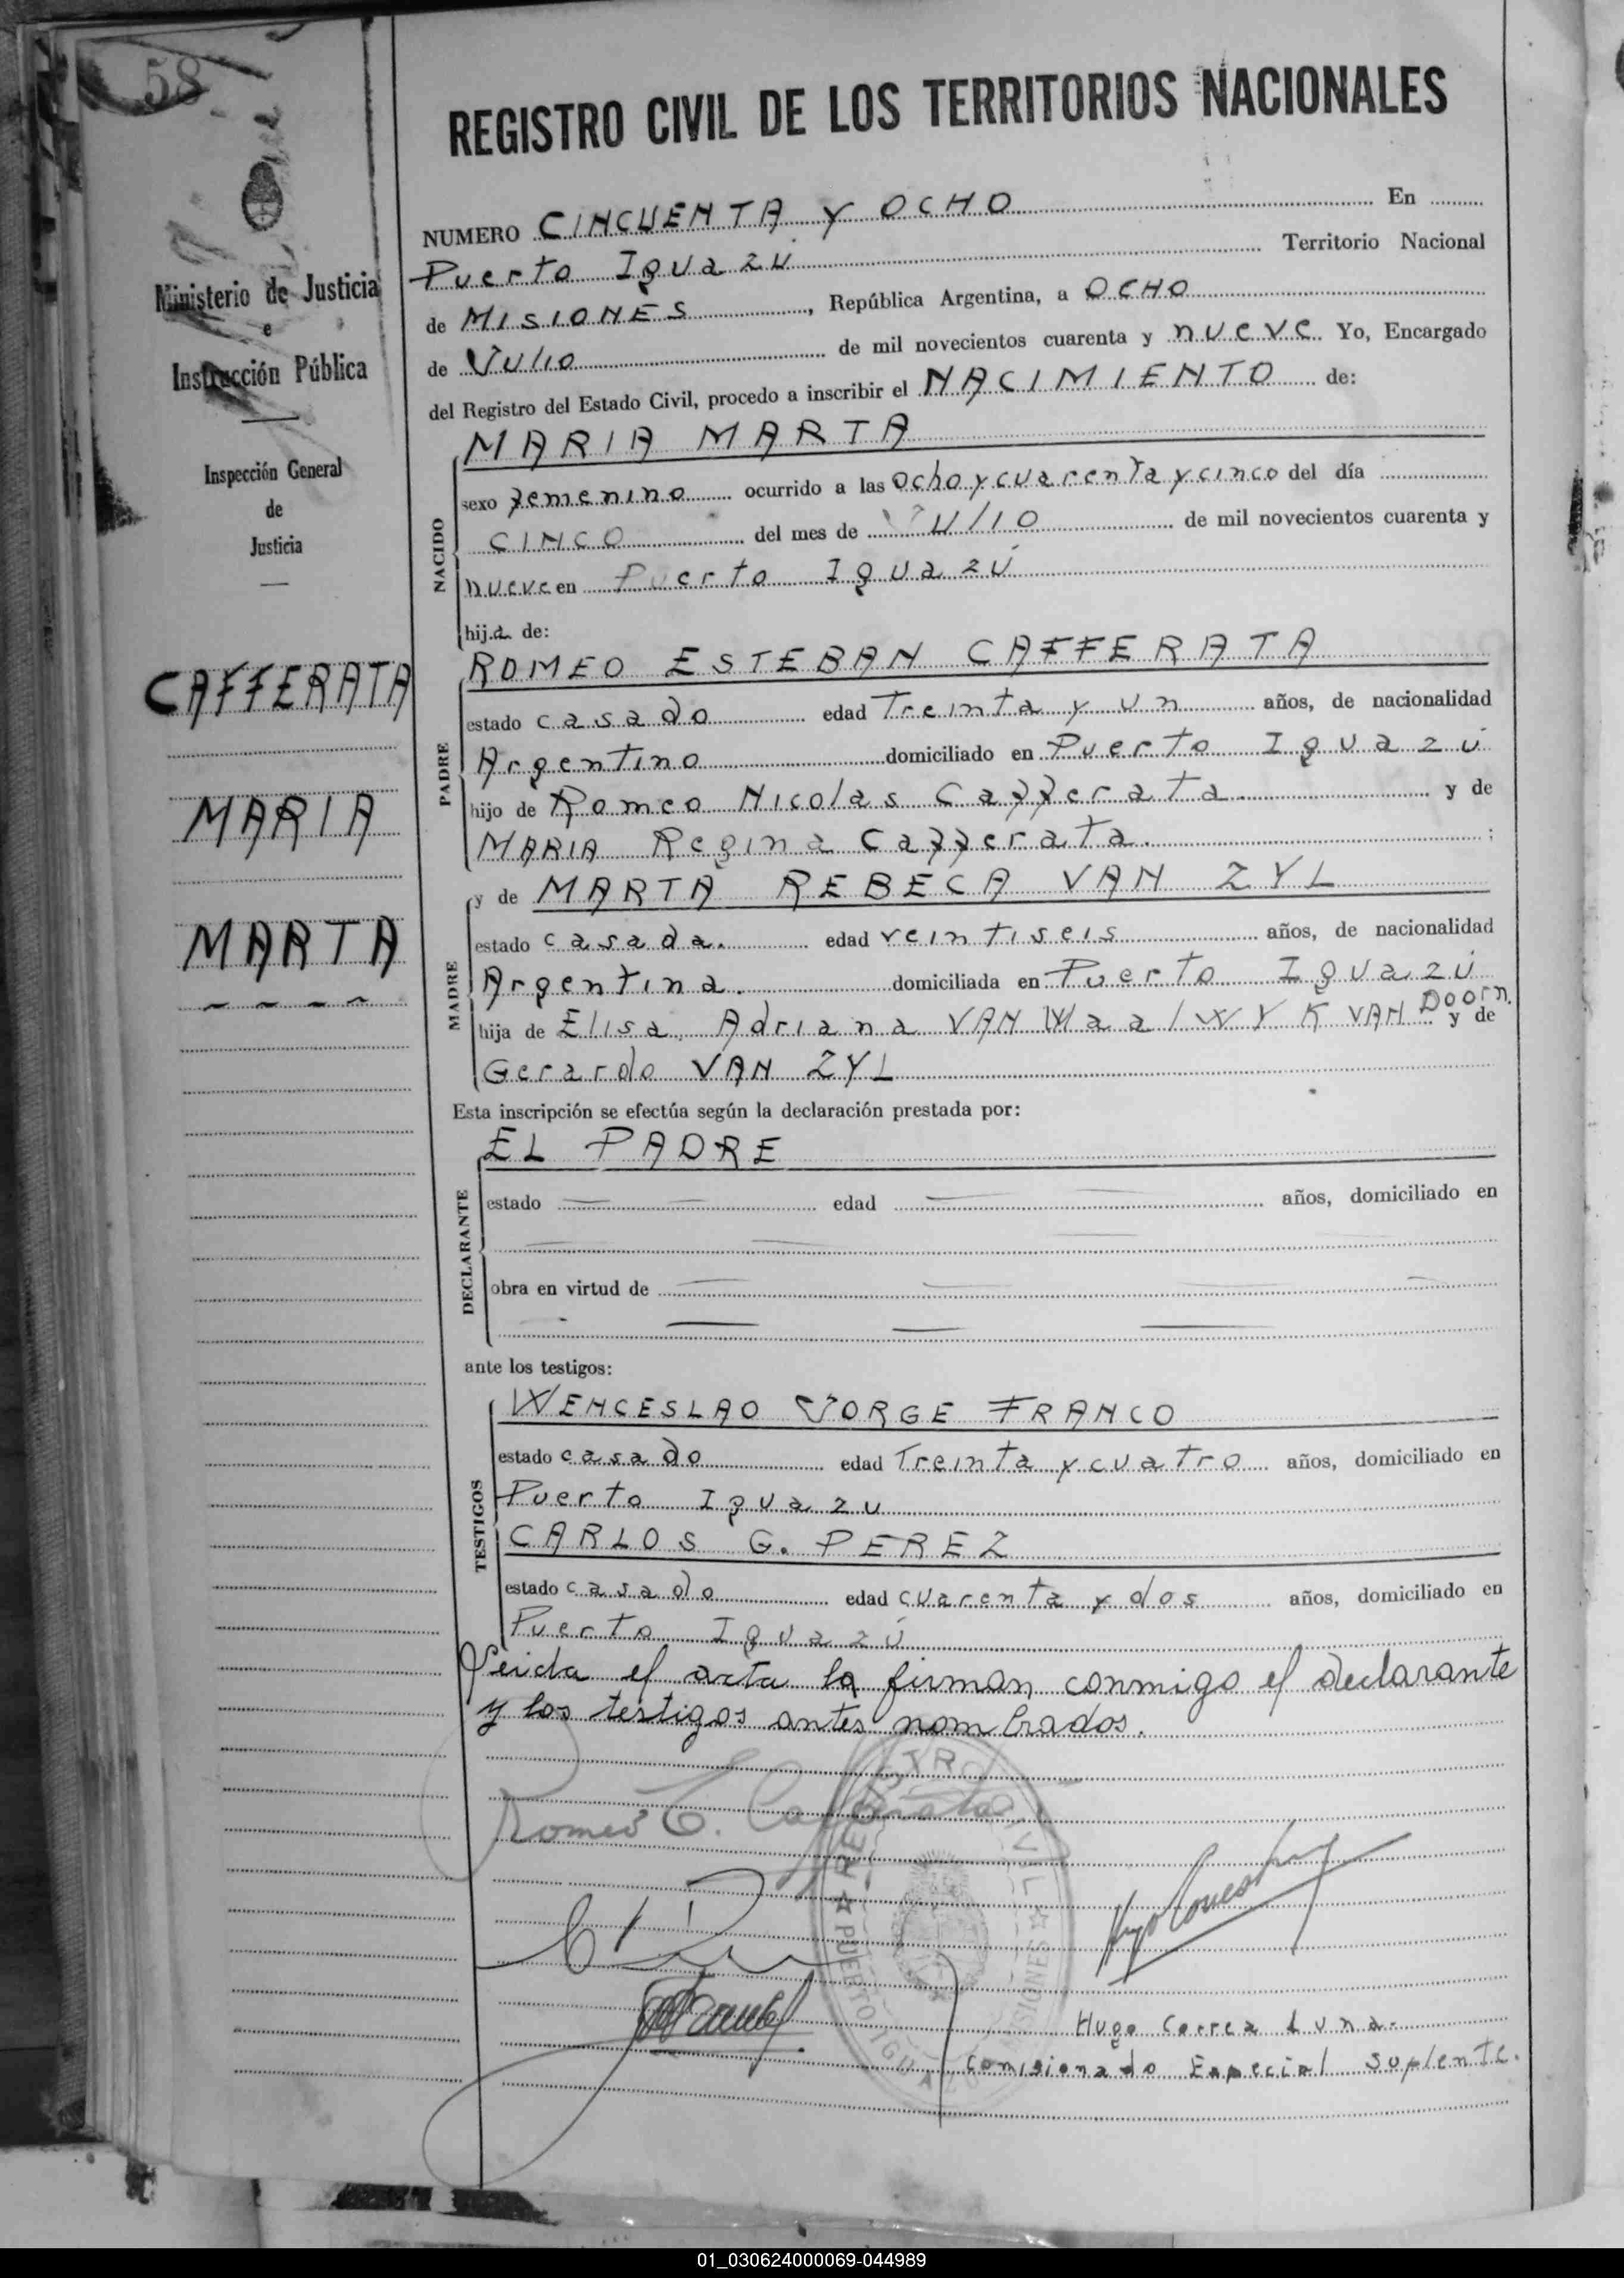 58
REGISTRO CIVIL DE LOS TERRITORIOS NACIONALES
Ministerio de Justicia
e
Instrucción Pública
Inspección General
de
Justicia
CAFFERATA
MARIA
MARTA
NUMERO CINCUENTA Y OCHO En
Puerto Iguazú Territorio Nacional
de MISIONES, República Argentina, a OCHO
de Julio de mil novecientos cuarenta y nueve Yo, Encargado
del Registro del Estado Civil, procedo a inscribir el NACIMIENTO de:
NACIDO
MARIA MARTA
sexo femenino ocurrido a las ocho y cuarenta y cinco del día
CINCO del mes de Julio de mil novecientos cuarenta y
nueve en Puerto Iguazú
hija de:
PADRE
ROMEO ESTEBAN CAFFERATA
estado casado edad Treinta y un años, de nacionalidad
Argentino domiciliado en Puerto Iguazú
hijo de Romeo Nicolas Cafferata y de
MARIA Regina Cafferata. ;
MADRE
y de MARTA REBECA VAN ZYL
estado casada. edad veintiseis años, de nacionalidad
Argentina. domiciliada en Puerto Iguazú
hija de Elisa Adriana VAN Waalwyk VAN Doorn. y de
Gerardo VAN ZYL
Esta inscripción se efectúa según la declaración prestada por:
DECLARANTE
EL PADRE
estado edad años, domiciliado en
obra en virtud de
ante los testigos:
TESTIGOS
WENCESLAO JORGE FRANCO
estado casado edad Treinta y cuatro años, domiciliado en
Puerto Iguazu
CARLOS G. PEREZ
estado casado edad cuarenta y dos años, domiciliado en
Puerto Iguazú
Leida el acta la firman conmigo el declarante
y los testigos antes nombrados.
Romeo E. Cafferata
REGISTRO CIVIL ☆ MISIONES ☆ PUERTO IGUAZU
Hugo Correa Luna.
Comisionado Especial Suplente.
01_030624000069-044989